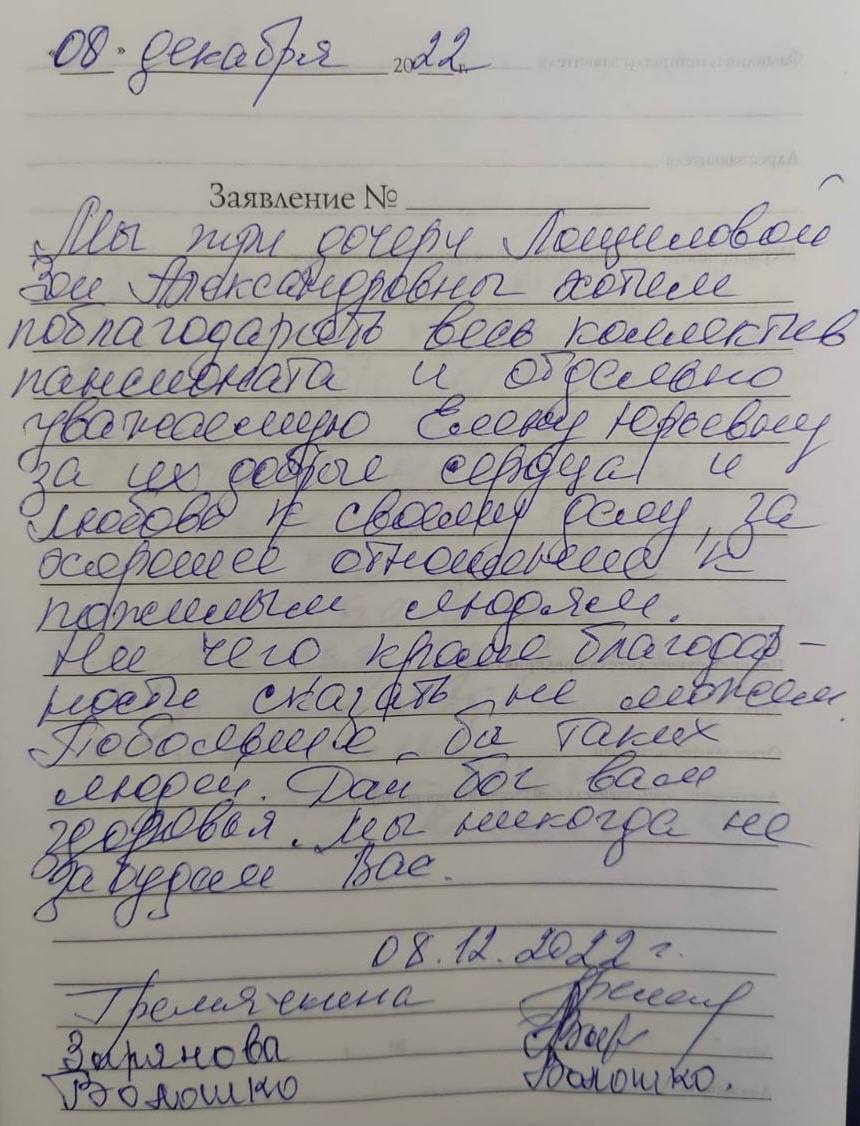 «08» декабря 2022г.
Заявление №
Мы три дочери Лощиловой
Зои Александровны хотим
поблагодарить весь коллектив
пансионата и отдельно
уважаемую Елену Юрьевну
за их добрые сердца и
любовь к своему делу, за
хорошее отношение к
пожилым людям.
Ни чего кроме благодар-
ности сказать не можем.
Побольше бы таких
людей. Дай бог вам
здоровья. Мы никогда не
забудем Вас.
08.12.2022 г.
Гремячкина
Зырянова
Волошко Волошко.